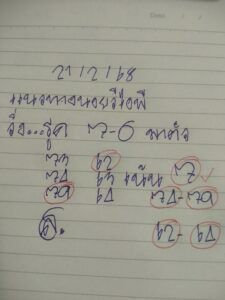 21/2/68
แนวทางหวยวีไอพี
วิ่ง...รูด 7-6
73 62
74 63 เน้น 7
79 64 74-79
62-64